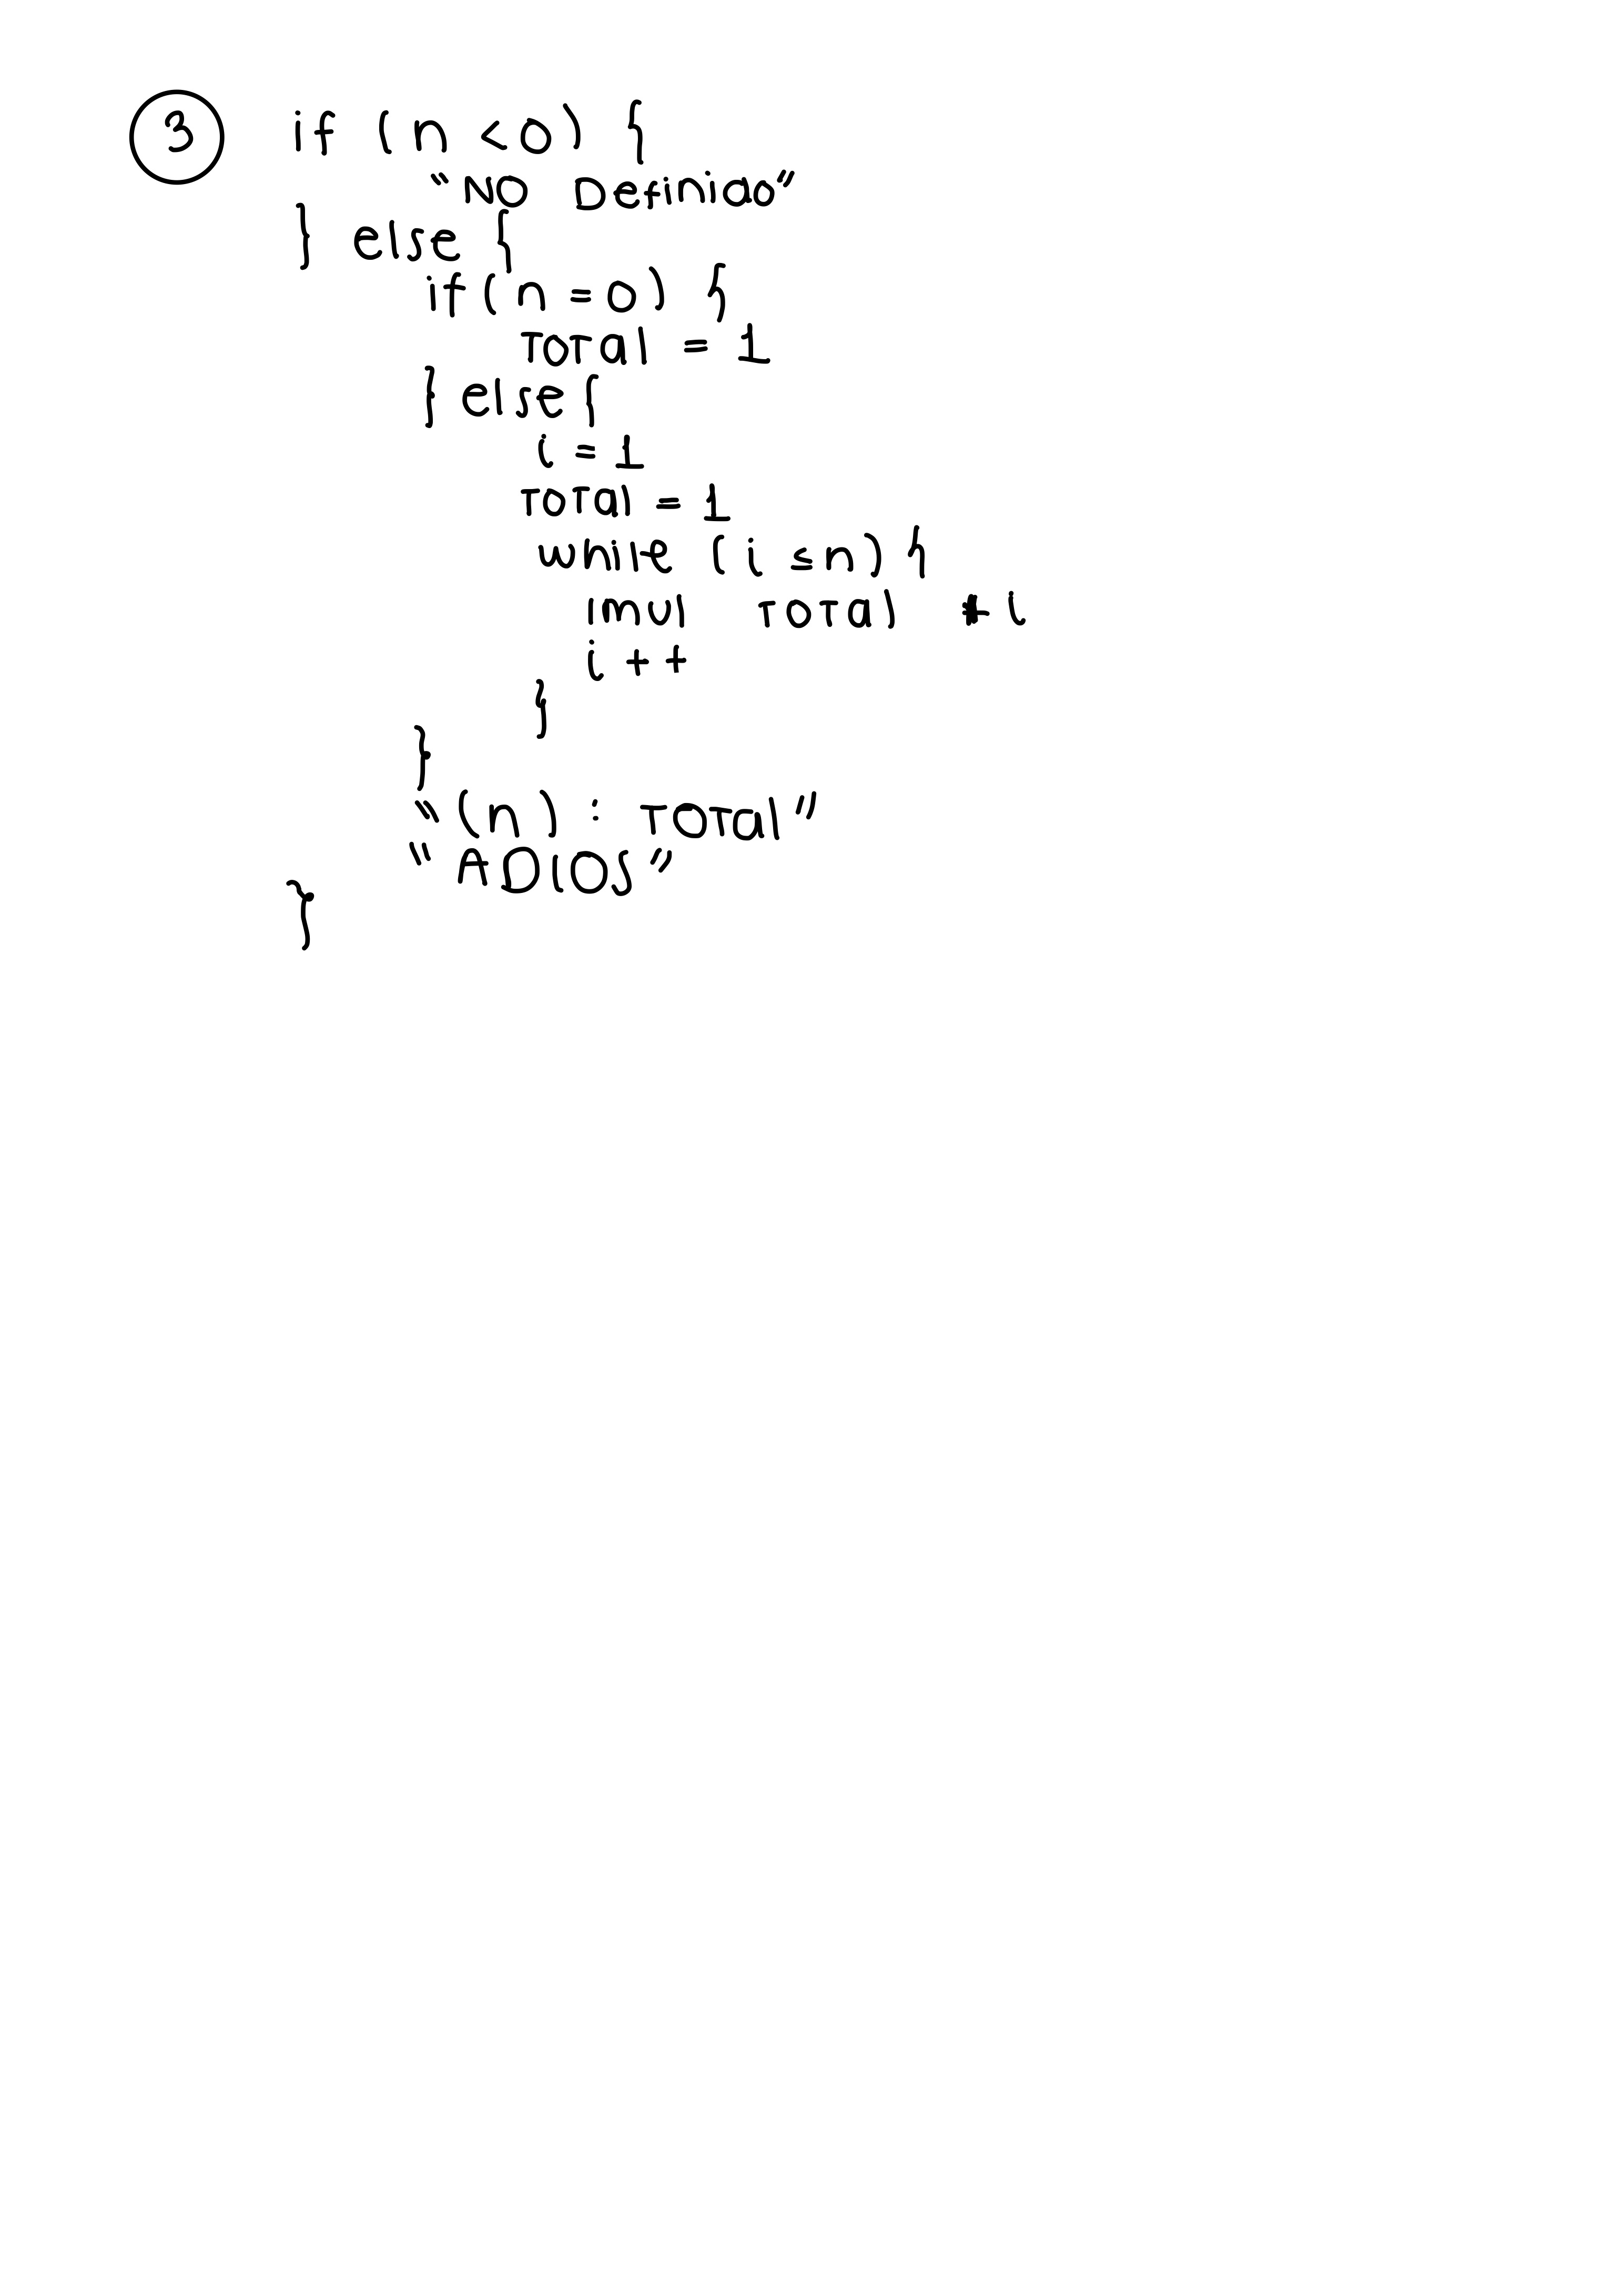 3 if (n <0) {
"NO Definido"
} else {
if (n = 0) {
TOTal = 1
} else {
i = 1
TOTal = 1
while (i ≤ n) {
imul TOTal * i
i ++
}
}
"(n) : TOTal"
"ADIOS"
}